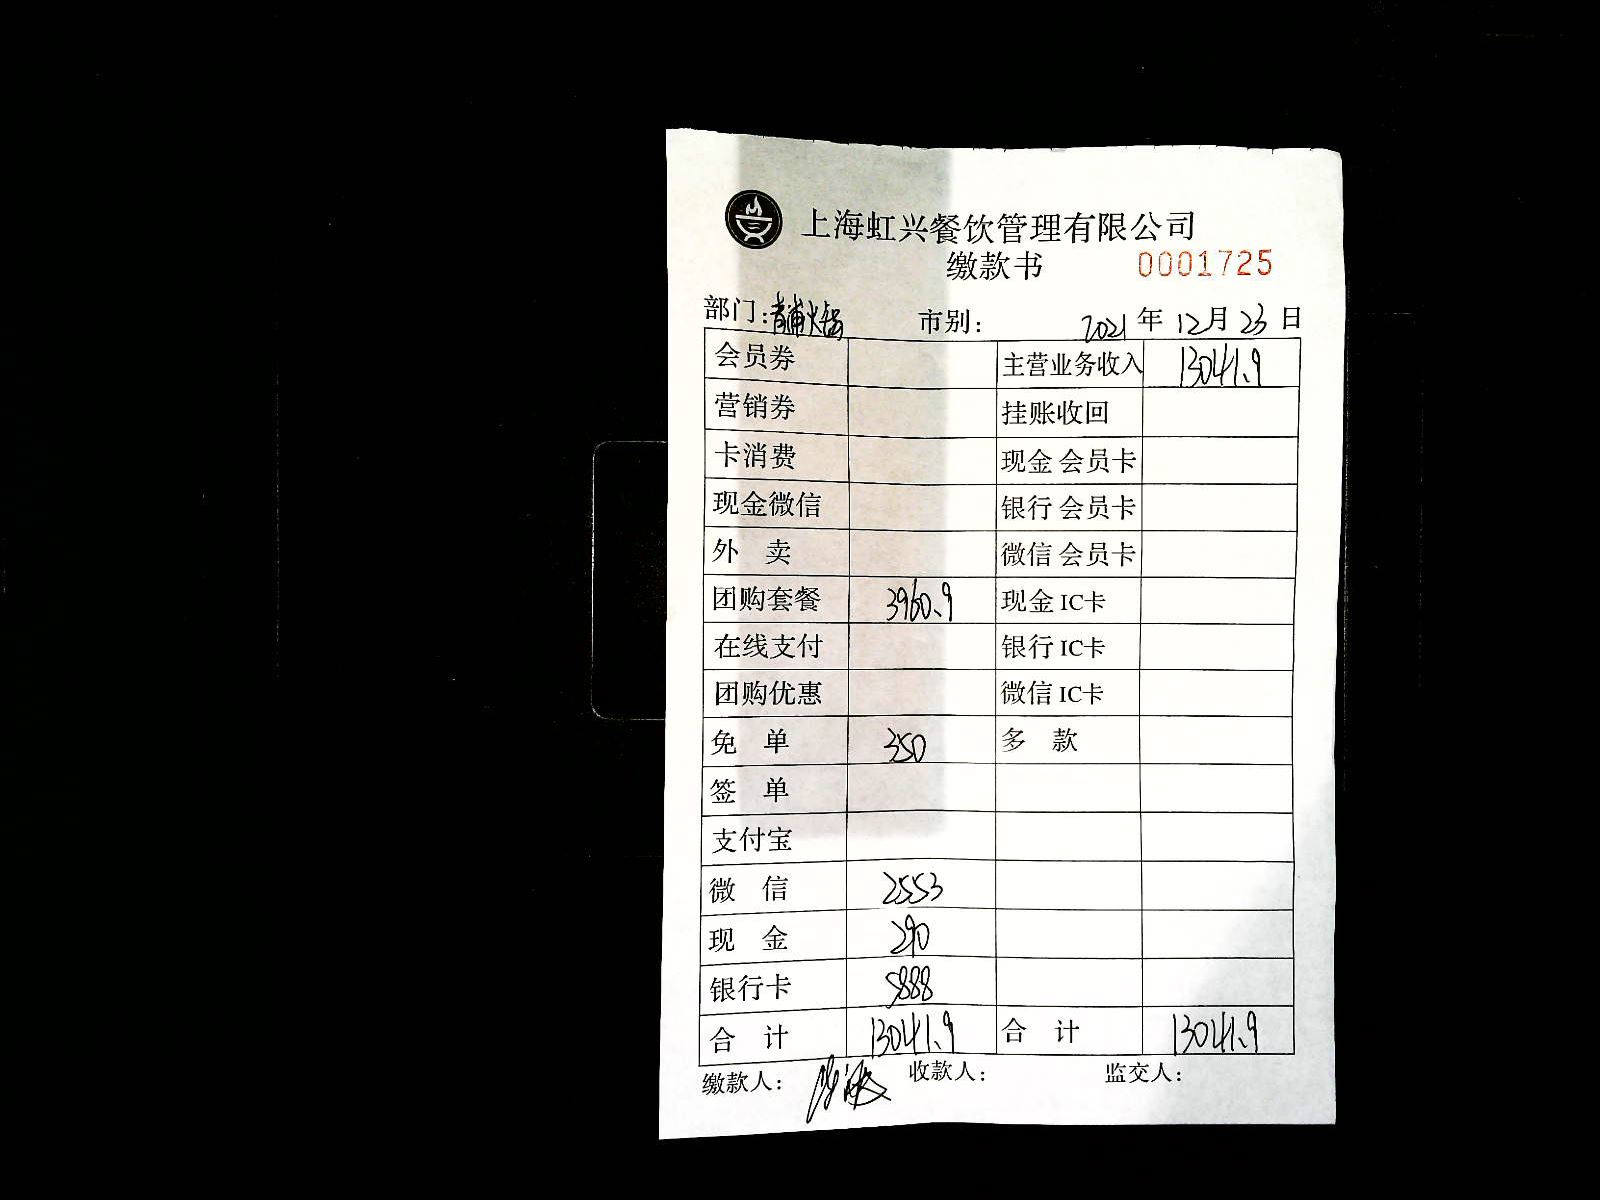 上海虹兴餐饮管理有限公司
缴款书 0001725
部门:青浦火锅 市别: 2021年12月23日
会员券 主营业务收入 13041.9
营销券 挂账收回
卡消费 现金 会员卡
现金微信 银行 会员卡
外 卖 微信 会员卡
团购套餐 3960.9 现金 IC卡
在线支付 银行 IC卡
团购优惠 微信 IC卡
免 单 350 多 款
签 单
支付宝
微 信 2553
现 金 290
银行卡 5888
合 计 13041.9 合 计 13041.9
缴款人: 收款人: 监交人: